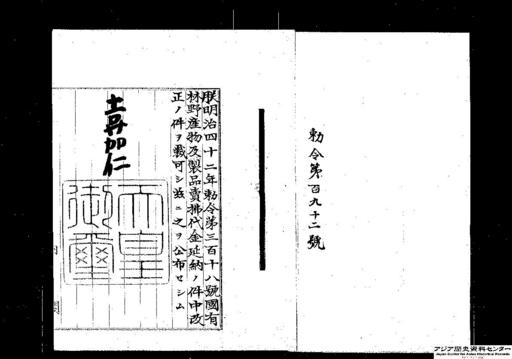 勅令第百九十二號
朕明治四十二年勅令第三百十八號國有
林野産物及製品賣拂代金延納ノ件中改
正ノ件ヲ裁可シ茲ニ之ヲ公布セシム
嘉仁
天皇
御璽
アジア歴史資料センター
Japan Center for Asian Historical Records